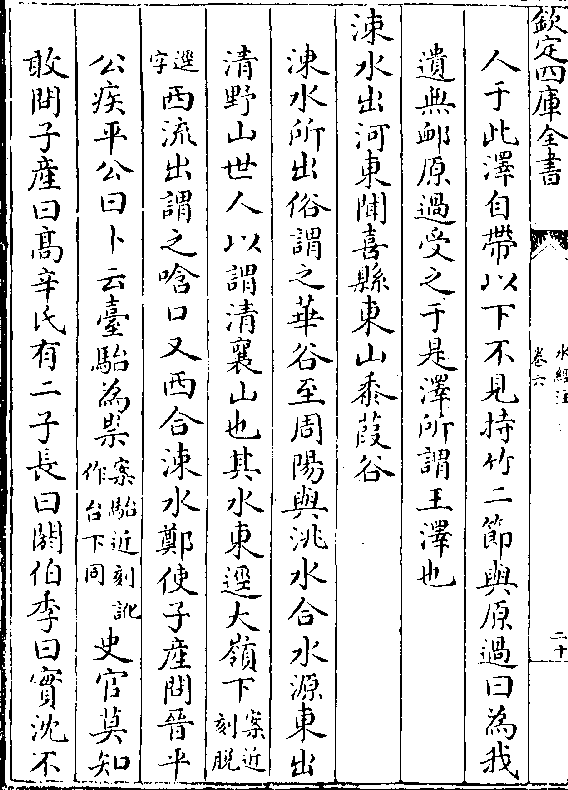 欽定四庫全書
水經注
卷六
二十
人于此澤自帶以下不見持竹二節與原過曰為我
遺無䘏原過受之于是澤所謂王澤也
涑水出河東聞喜縣東山黍葭谷
涑水所出俗謂之華谷至周陽與洮水合水源東出
清野山世人以謂清襄山也其水東逕大嶺下案近刻脫
逕字西流出謂之唅口又西合涑水鄭使子產問晉平
公疾平公曰卜云臺駘為祟案駘近刻訛作台下同史官莫知
敢問子產曰高辛氏有二子長曰閼伯季曰實沈不